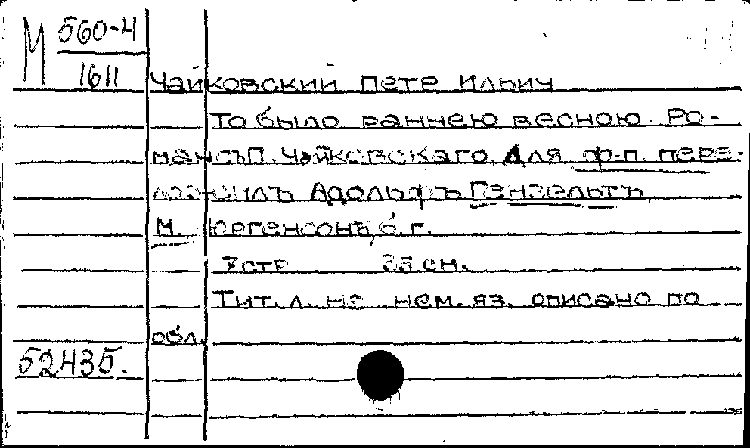 М 560-4
1611
Чайковский Петр Ильич
То было раннею весною. Ро-
мансъ П. Чайковскаго. Для ф-п. пере-
ложилъ Адольфъ Гензельтъ
М. Юргенсонъ, б. г.
7 стр 33 см.
Тит. л. на нем. яз. описано по
обл.
52435.